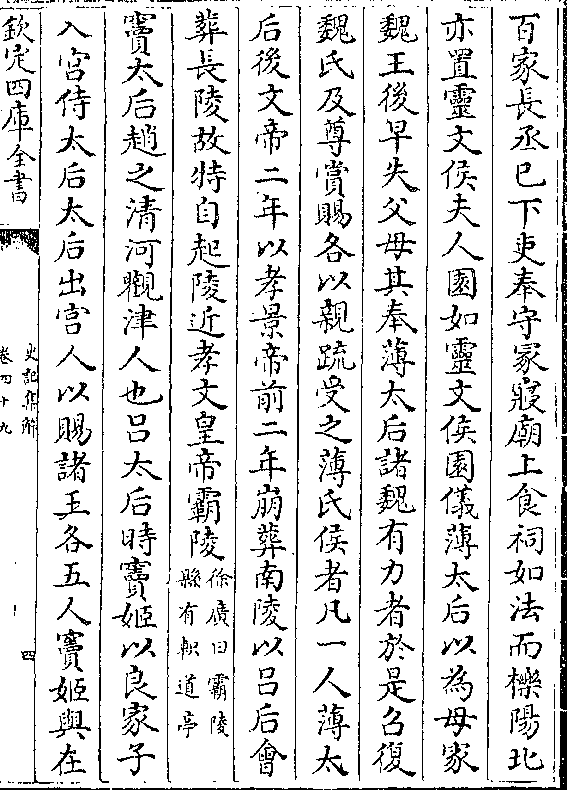 百家長丞已下吏奉守冢寢廟上食祠如法而櫟陽北
亦置靈文侯夫人園如靈文侯園儀薄太后以為母家
魏王後早失父母其奉薄太后諸魏有力者於是召復
魏氏及尊賞賜各以親疏受之薄氏侯者凡一人薄太
后後文帝二年以孝景帝前二年崩葬南陵以吕后會
葬長陵故特自起陵近孝文皇帝霸陵徐廣曰霸陵
縣有軹道亭
竇太后趙之清河觀津人也吕太后時竇姬以良家子
入宫侍太后太后出宫人以賜諸王各五人竇姬與在
欽定四庫全書
史記集解
卷四十九
四